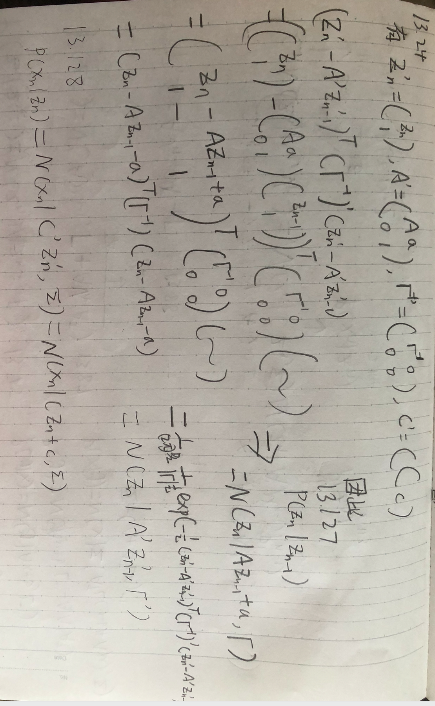 13.24
有 Z'n = (Zn 1), A' = (A a 0 1), Γ^-1' = (Γ^-1 0 0 0), C' = (C c)
(Z'n - A'Z'n-1)^T (Γ^-1)' (Z'n - A'Z'n-1)
= ((Zn 1) - (A a 0 1)(Zn-1 1))^T (Γ^-1 0 0 0) (~)
= (Zn - AZn-1+a 1 - 1)^T (Γ^-1 0 0 0) (~)
= (Zn - AZn-1 - a)^T (Γ^-1) (Zn - AZn-1 - a)
⇒
因此
13.127
P(Zn|Zn-1)
= N(Zn|AZn-1+a, Γ)
= exp(-1/2 (Z'n - A'Z'n-1)^T (Γ^-1)' (Z'n - A'Z'n-
= N(Zn|A'Z'n-1, Γ')
13.128
P(Xn|Zn) = N(Xn|C'Z'n, Σ) = N(Xn|CZn+c, Σ)